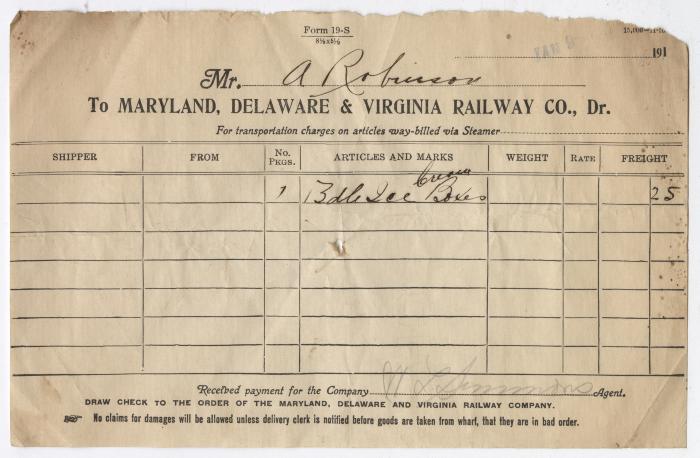 Form 19-S
8½x5½
JAN 9 191
Mr. A Robinson
To MARYLAND, DELAWARE & VIRGINIA RAILWAY CO., Dr.
For transportation charges on articles way-billed via Steamer
SHIPPER FROM No. PKGS. ARTICLES AND MARKS WEIGHT RATE FREIGHT
1 Bdle Ice Cream Boxes 25
Received payment for the Company W L Simmons Agent.
DRAW CHECK TO THE ORDER OF THE MARYLAND, DELAWARE AND VIRGINIA RAILWAY COMPANY.
No claims for damages will be allowed unless delivery clerk is notified before goods are taken from wharf, that they are in bad order.